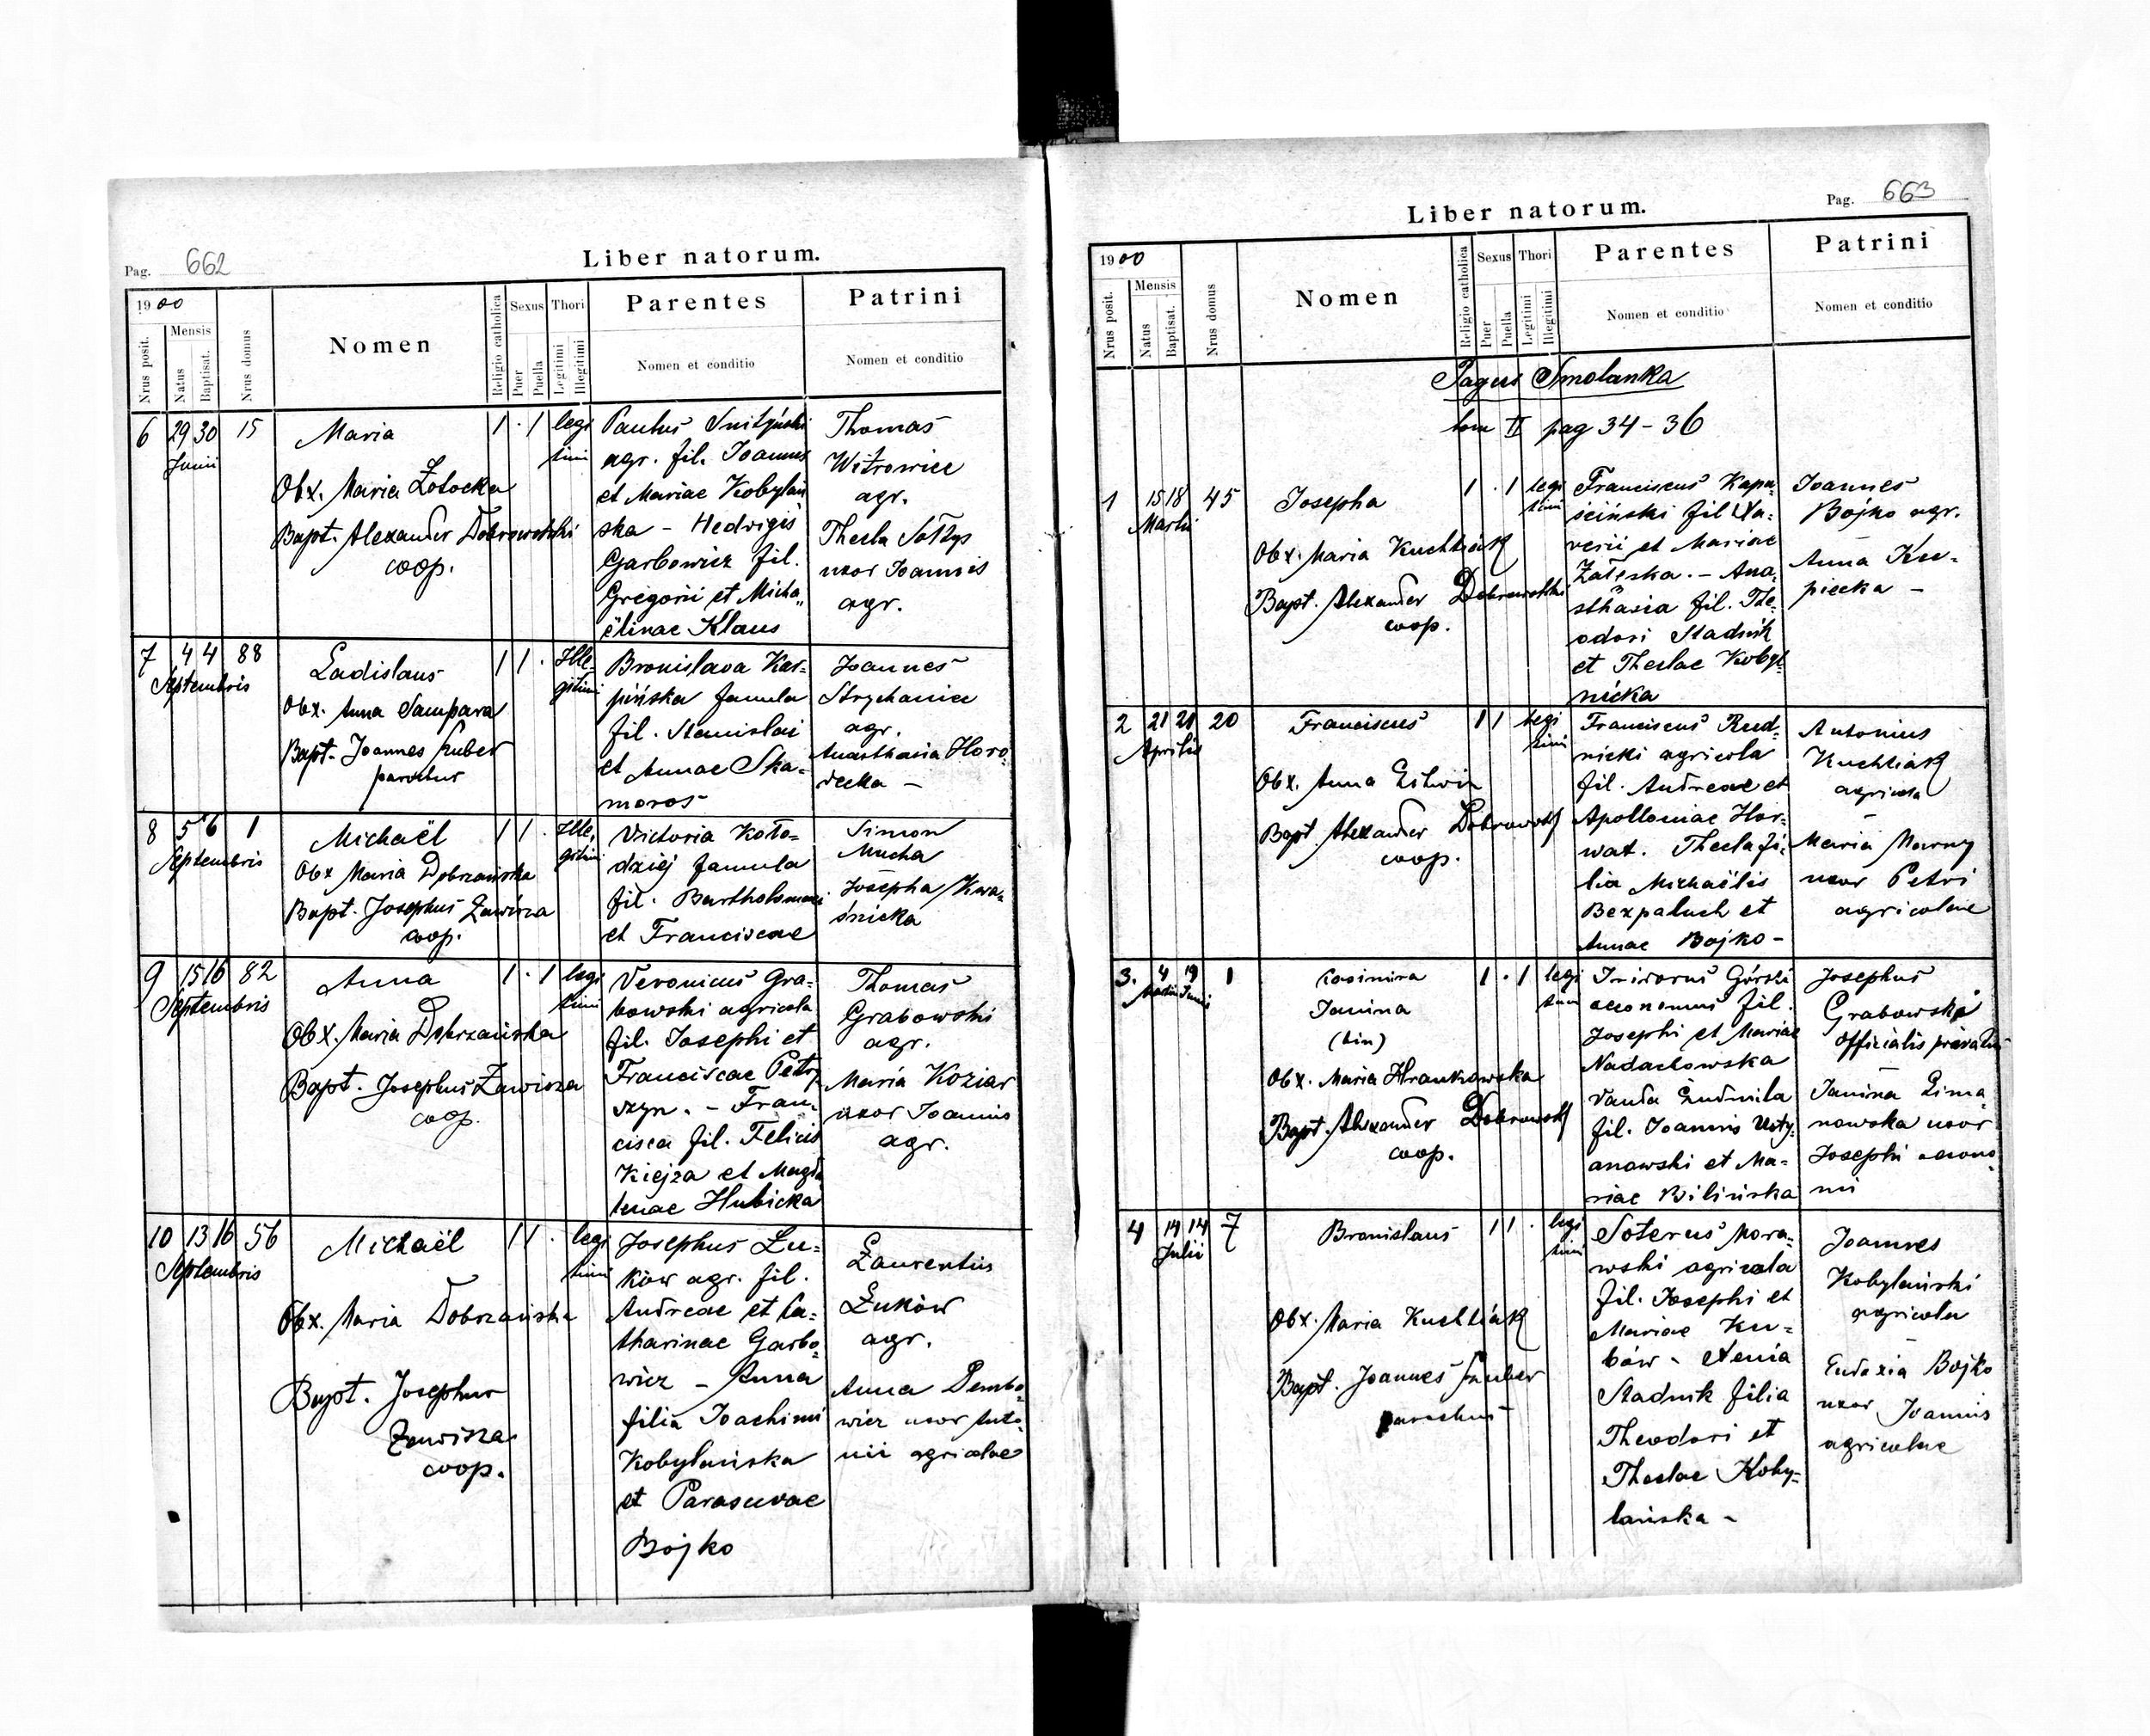 Pag. 662
Liber natorum.
1900
Nrus posit.
Mensis
Natus
Baptisat.
Nrus domus
Nomen
Religio catholica
Sexus
Puer
Puella
Thori
Legitimi
Illegitimi
Parentes
Nomen et conditio
Patrini
Nomen et conditio
6 29 30 Junii 15
Maria
Obx. Maria Zotocka
Bapt. Alexander Dobrowolski
coop.
1 . 1 legi
timi
Paulus Snityński
agr. fil. Joannis
et Mariae Kobylań
ska – Hedvigis
Garbowicz fil.
Gregorii et Micha„
ëlinae Klaus
Thomas
Witrowicz
agr.
Thecla Sołtys
uxor Joannis
agr.
7 4 4 Septembris 88
Ladislaus
Obx. Anna Sampara
Bapt. Joannes Huber
parochus
1 1 . Ille-
gitimi
Bronislava Kar-
pińska famula
fil. Stanislai
et Annae Ska-
moros
Joannes
Strychanice
agr.
Anasthasia Horo-
decka –
8 5 6 Septembris 1
Michaël
Obx Maria Dobrzańska
Bapt. Josephus Zawisza
coop.
1 1 . Ille,
gitimi
Victoria Koło=
dziej famula
fil. Bartholomaei
et Franciscae
Simon
Mucha
Josepha Kwa-
śnicka
9 15 16 Septembris 82
Anna
Obx. Maria Dobrzańska
Bapt. Josephus Zawisza
coop.
1 . 1 legi
timi
Veronicus Gra-
bowski agricola
fil. Josephi et
Franciscae Petry
szyn. – Fran-
cisca fil. Felicis
Kiejza et Magda
lenae Hubicka
Thomas
Grabowski
agr.
Maria Koziar
uxor Joannis
agr.
10 13 16 Septembris 56
Michaël
Obx. Maria Dobrzańska
Bapt. Josephus
Zawisza
coop.
1 1 . legi
timi
Josephus Łu=
ków agr. fil.
Andreae et Ca=
tharinae Garbo=
wicz – Anna
filia Joachimi
Kobylańska
et Parascevae
Bojko
Laurentius
Łuków
agr.
Anna Dembo
wicz uxor Anto
nii agricolae
Pag. 663
Liber natorum.
1900
Nrus posit.
Mensis
Natus
Baptisat.
Nrus domus
Nomen
Religio catholica
Sexus
Puer
Puella
Thori
Legitimi
Illegitimi
Parentes
Nomen et conditio
Patrini
Nomen et conditio
Pagus Smolanka
tom II pag 34-36
1 15 18 Martii 45
Josepha
Obx. Maria Kuchtiak
Bapt. Alexander Dobrowolski
coop.
1 . 1 legi
timi
Franciscus Kapu-
ściński fil Xa=
verii et Mariae
Załęska. – Ana-
sthasia fil. The-
odori Stadnik
et Theclae Kobyl-
nicka
Joannes
Bojko agr.
Anna Kru-
piecka –
2 21 21 Aprilis 20
Franciscus
Obx. Anna Litwin
Bapt. Alexander Dobrowolsk
coop.
1 1 legi
timi
Franciscus Rud-
nicki agricola
fil. Andreae et
Apolloniae Hor-
wat. Thecla fi-
lia Michaëlis
Bezpaluch et
Annae Bojko –
Antonius
Kuchtiak
agricola
–
Maria Marny
uxor Petri
agricolae
3. 4 19 Martii Junii 1
Casimira
Janina
(bin)
Obx. Maria Hrankowska
Bapt. Alexander Dobrowolsk
coop.
1 . 1 legi
timi
Isidorus Górski
oeconomus fil.
Josephi et Mariae
Nadachowska
Vanda Ludmila
fil. Joannis Usty-
anowski et Ma-
riae Bilińska
Josephus
Grabowski
officialis privatus
Janina Lima
nowska uxor
Josephi oecono-
mi
4 14 14 Julii 7
Bronislaus
Obx. Maria Kuchtiak
Bapt. Joannes Huber
parochus
1 1 . legi
timi
Soterus Mora-
wski agricola
fil. Josephi et
Mariae Ku-
bów - Xenia
Stadnik filia
Theodori et
Theclae Koby-
lańska –
Joannes
Kobylański
agricola
–
Eudoxia Bojko
uxor Joannis
agricolae